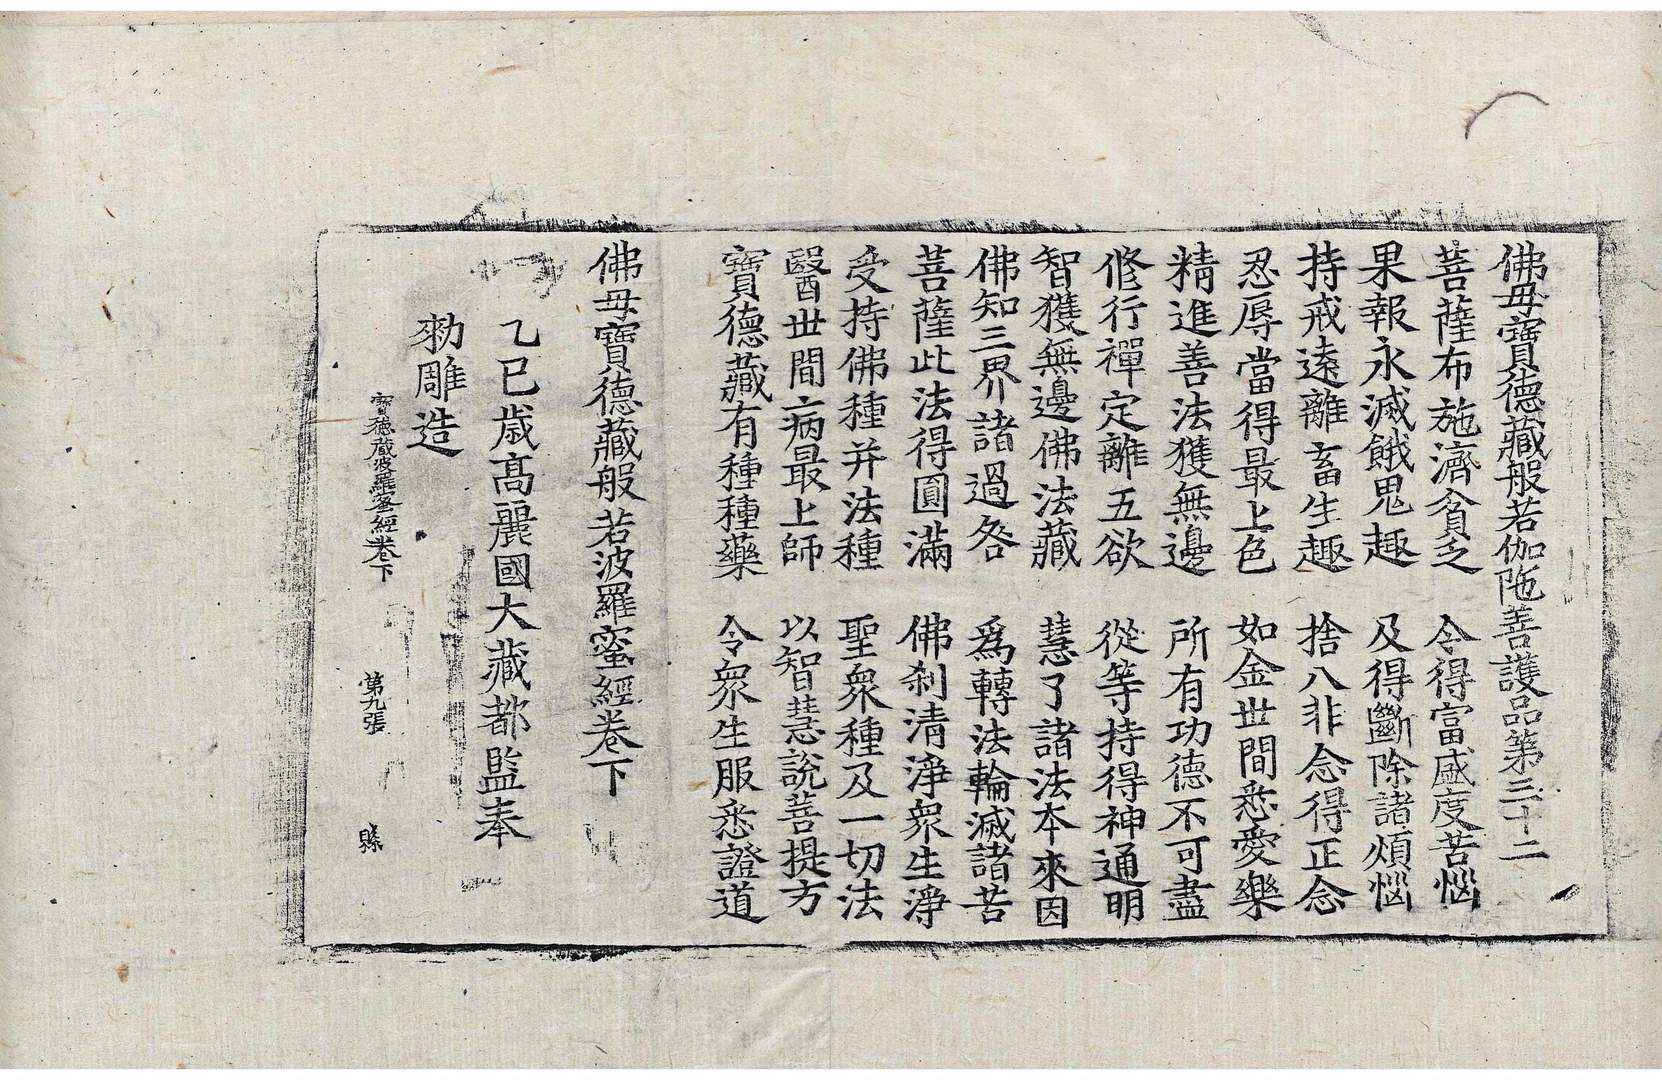 佛母寶德藏般若伽陁善護品第三十二
菩薩布施濟貧乏 令得富盛度苦惱
果報永滅餓鬼趣 及得斷除諸煩惱
持戒遠離畜生趣 捨八非念得正念
忍辱當得最上色 如金世間悉愛樂
精進善法獲無邊 所有功德不可盡
修行禪定離五欲 從等持得神通明
智獲無邊佛法藏 慧了諸法本來因
佛知三界諸過咎 爲轉法輪滅諸苦
菩薩此法得圓滿 佛刹清淨衆生淨
受持佛種并法種 聖衆種及一切法
醫世間病最上師 以智慧說菩提方
寶德藏有種種藥 令衆生服悉證道
佛母寶德藏般若波羅蜜經卷下
乙巳歲高麗國大藏都監奉
勑雕造
寶德藏波羅蜜經卷下 第九張 縣